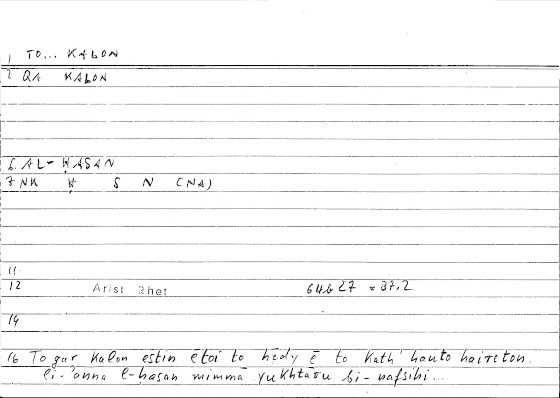 1 TO... KALON
2 QA KALON
6. AL-ḤASAN
7 NK Ḥ S N (NA)
11
12 Arist Rhet 64b27 = 37,2
14
16 To gar kalon estin ētoi to hēdy ē to kath' hauto haireton.
li-'anna l-ḥasan mimmā yukhtāru bi-nafsihi...